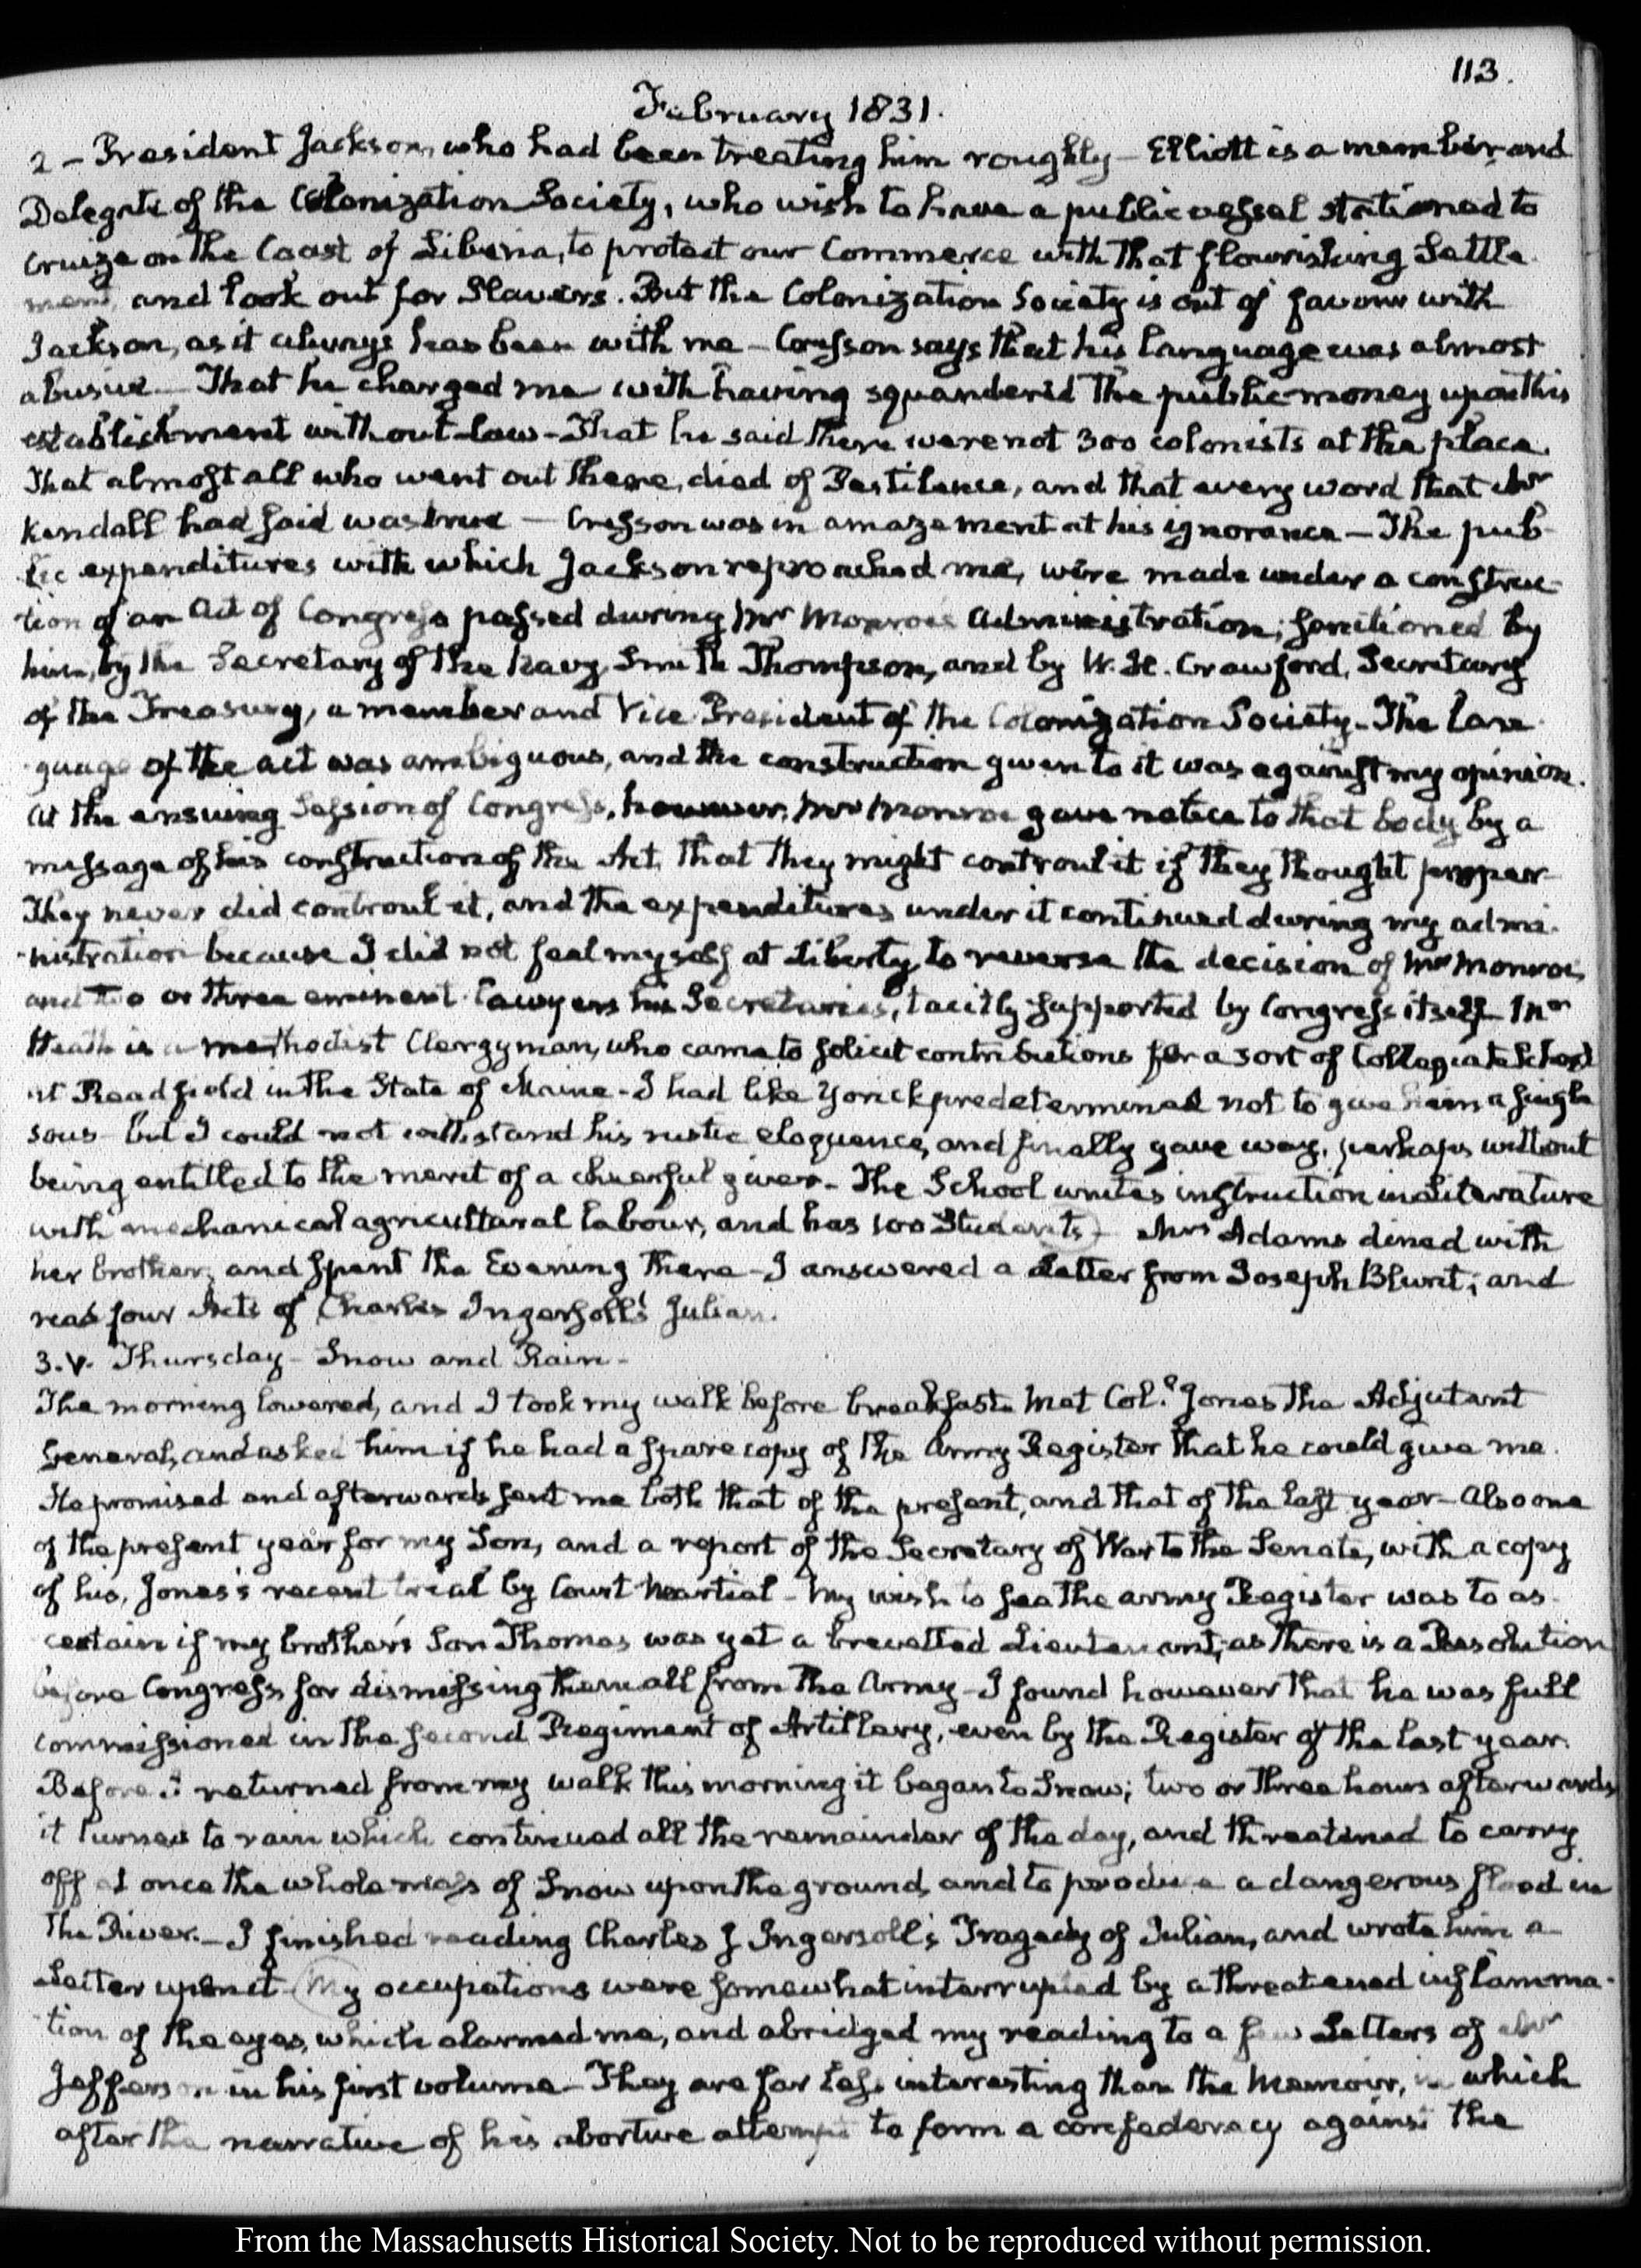 113.
February 1831.
2 – President Jackson, who had been treating him roughly – Elliott is a member and
Delegate of the Colonization Society, who wish to have a public vessel stationed to
cruize on the Coast of Liberia, to protect our Commerce with that flourishing Settle-
ment, and look out for Slavers. But the Colonization Society is out of favour with
Jackson, as it always has been with me – Cresson says that his language was almost
abusive – That he charged me with having squandered the public money upon this
establishment without law – That he said there were not 300 colonists at the place.
That almost all who went out there, died of Pestilence, and that every word that Mr
Kendall had said was true – Cresson was in amazement at his ignorance – The pub-
lic expenditures with which Jackson reproached me, were made under a construc-
tion of an Act of Congress passed during Mr Monroe's Administration; sanctioned by
him, by the Secretary of the Navy, Smith Thompson, and by W. H. Crawford, Secretary
of the Treasury, a member and Vice President of the Colonization Society – The lan-
guage of the act was ambiguous, and the construction given to it was against my opinion.
At the ensuing Session of Congress, however, Mr Monroe gave notice to that body by a
message of his construction of the Act, that they might controul it if they thought proper
They never did controul it, and the expenditures under it continued during my admi-
nistration because I did not feel myself at liberty, to reverse the decision of Mr Monroe,
and two or three eminent lawyers his Secretaries, tacitly supported by Congress itself – Mr
Heath is a methodist Clergyman, who came to solicit contributions for a sort of Collegiate School
at Readfield in the State of Maine – I had like Yorick predetermined not to give him a single
sous – but I could not withstand his rustic eloquence, and finally gave way, perhaps without
being entitled to the merit of a cheerful giver – The School unites instruction in Literature
with mechanical agricultural labour, and has 100 Students – Mrs Adams dined with
her brother, and spent the Evening there – I answered a Letter from Joseph Blunt; and
read four Acts of Charles Ingersoll's Julian.
3. V. Thursday – Snow and Rain –
The morning lowered, and I took my walk before breakfast. Met Col.l Jones the Adjutant
General, and asked him if he had a spare copy of the Army Register that he could give me.
He promised and afterwards sent me both that of the present, and that of the last year – Also one
of the present year for my Son, and a report of the Secretary of War to the Senate, with a copy
of his, Jones's recent trial by Court Martial – My wish to see the army Register was to as-
certain if my brother's Son Thomas was yet a brevetted Lieutenant; as there is a Resolution
before Congress for dismissing them all from the Army – I found however that he was full
commissioned in the second Regiment of Artillery, even by the Register of the last year.
Before I returned from my walk this morning it began to Snow; two or three hours afterwards
it turned to rain which continued all the remainder of the day, and threatened to carry
off at once the whole mass of Snow upon the ground, and to produce a dangerous flood in
the River. – I finished reading Charles J Ingersoll's Tragedy of Julian, and wrote him a
Letter upon it – My occupations were somewhat interrupted by a threatened inflamma-
tion of the eyes, which alarmed me, and abridged my reading to a few Letters of Mr
Jefferson in his first volume – They are far less interesting than the Memoir, in which
after the narrative of his abortive attempt to form a confederacy against the
From the Massachusetts Historical Society. Not to be reproduced without permission.